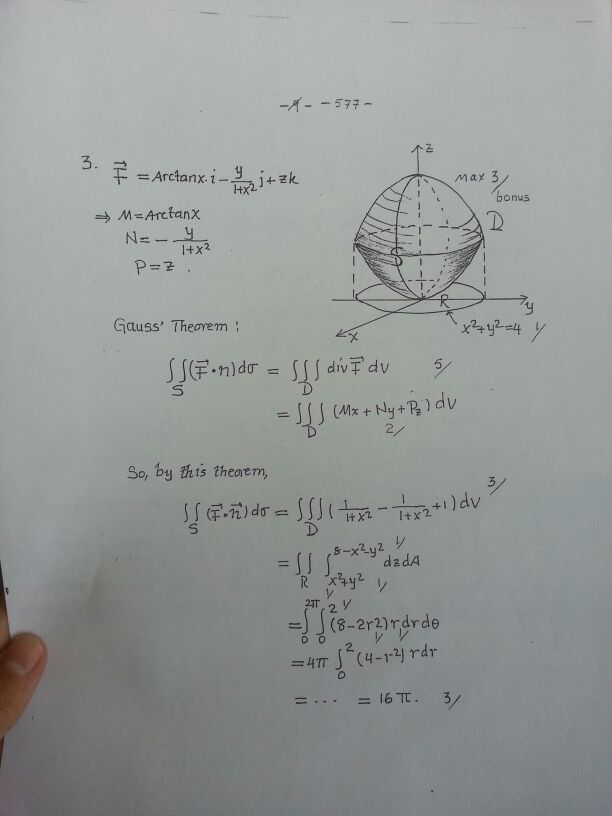 -9- -577-
3. F⃗ = Arctanx.i - y/(1+x²) j + zk
⇒ M = Arctanx
N = - y/(1+x²)
P = z .
z
max 3/
bonus
D
S
R
y
x
x²+y²=4 1/
Gauss' Theorem :
∬_S (F⃗•n)dσ = ∭_D div F⃗ dv 5/
= ∭_D (Mx + Ny + Pz) dV
2/
So, by this theorem,
∬_S (F⃗•n⃗)dσ = ∭_D ( 1/(1+x²) - 1/(1+x²) + 1 ) dV 3/
= ∬_R ∫_{x²+y²}^{8-x²-y²} dzdA 1/ 1/
= ∫_0^{2π} ∫_0^2 (8-2r2) r dr dθ 1/ 1/ 1/ 1/
= 4π ∫_0^2 (4-r²) r dr
= ... = 16 π. 3/